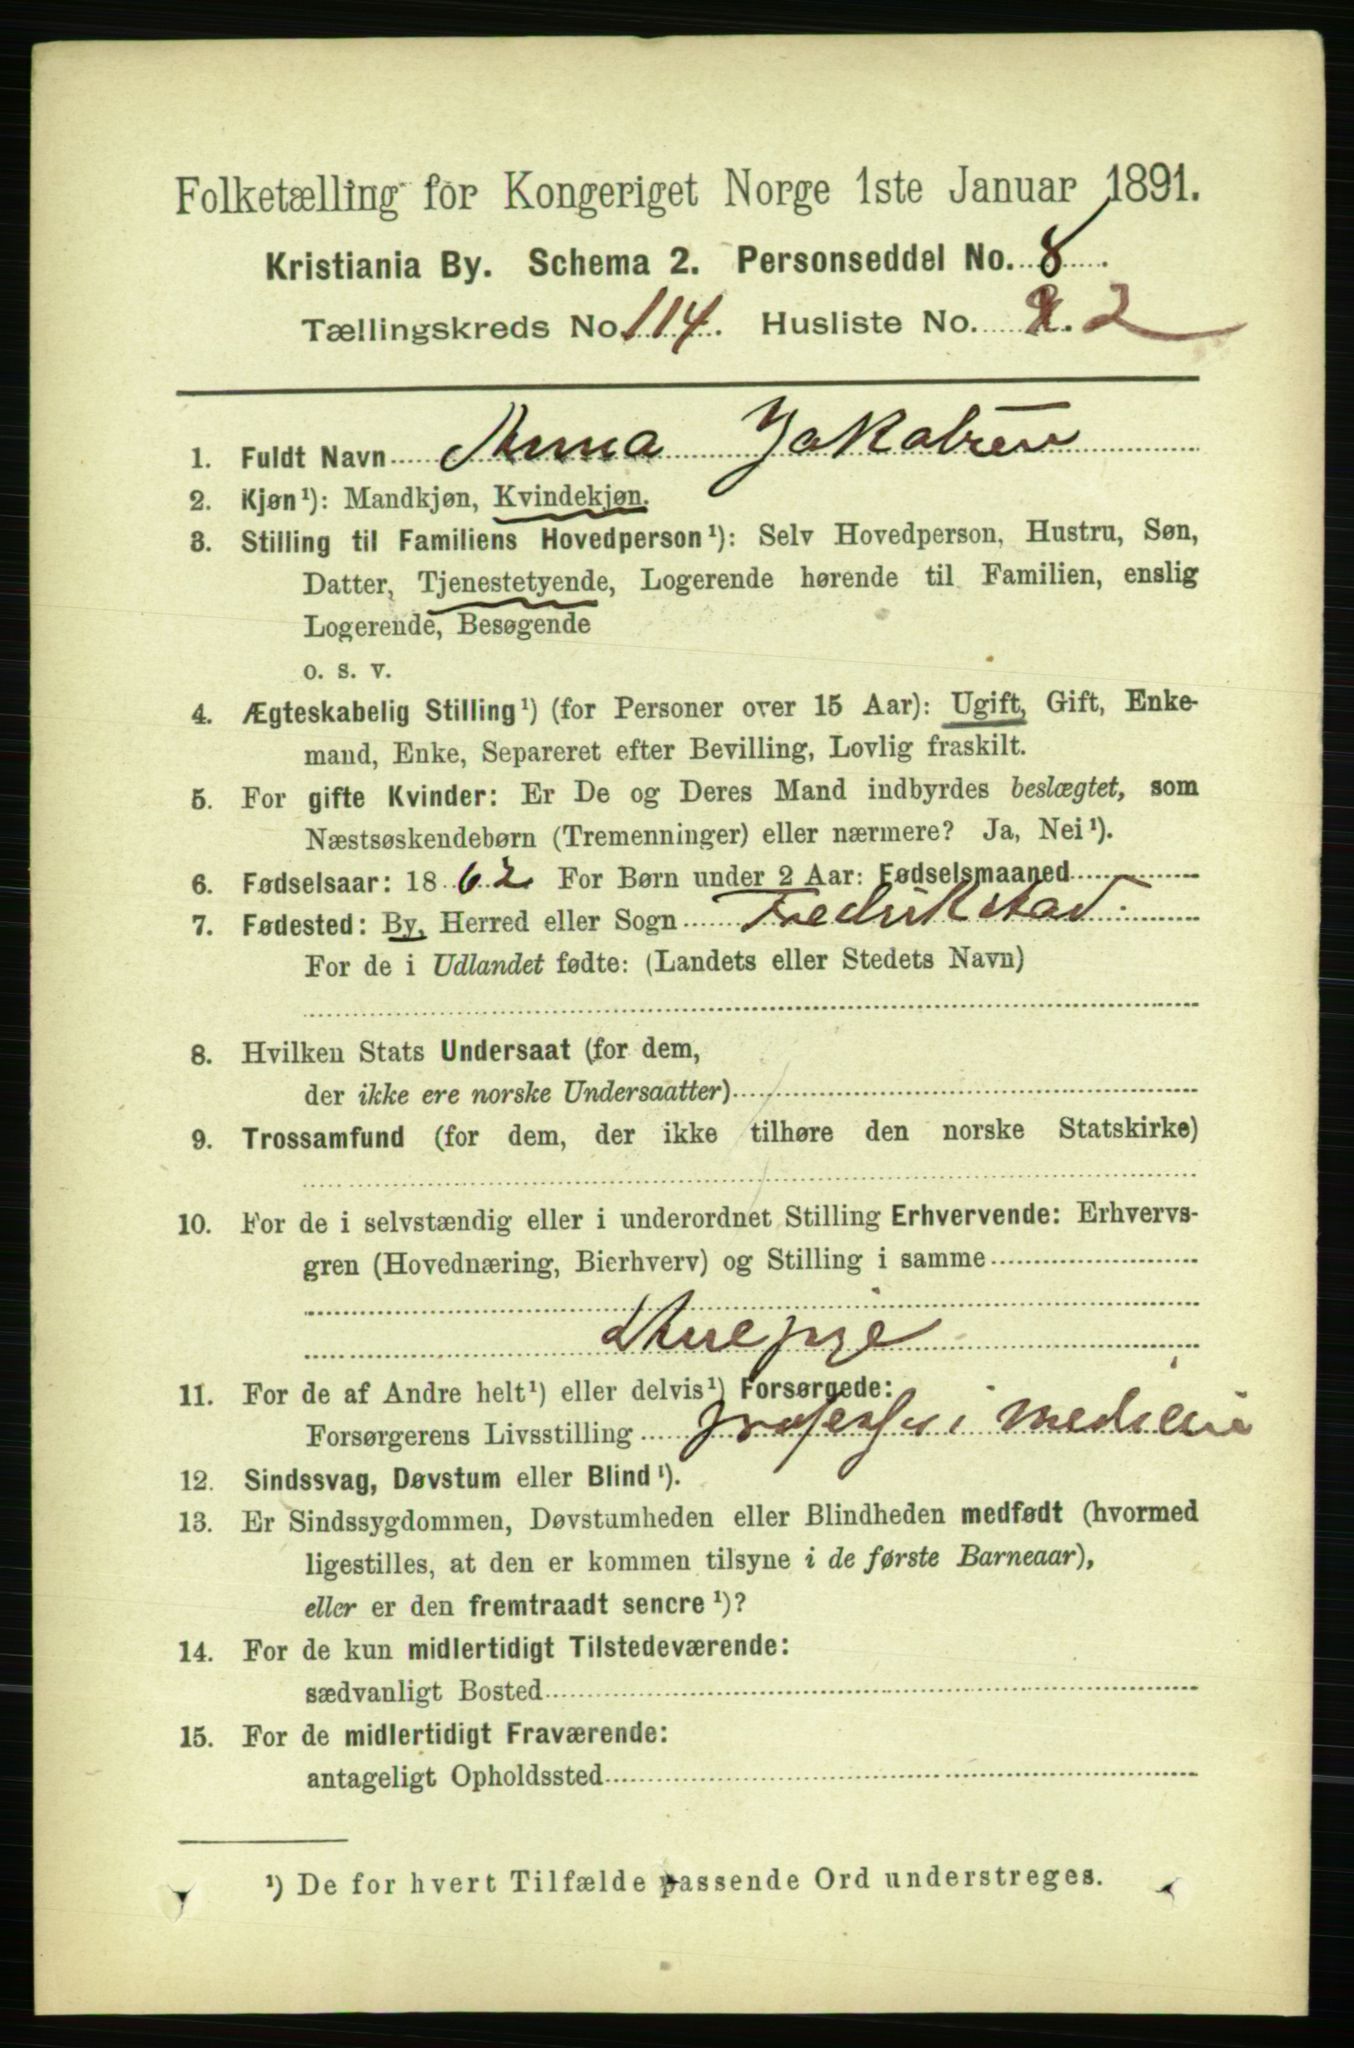 Folketælling for Kongeriget Norge 1ste Januar 1891.
Kristiania By. Schema 2. Personseddel No. 8.
Tællingskreds No. 114. Husliste No. 2
1. Fuldt Navn Anna Jakobsen
2. Kjøn¹): Mandkjøn, Kvindekjøn.
3. Stilling til Familiens Hovedperson¹): Selv Hovedperson, Hustru, Søn,
Datter, Tjenestetyende, Logerende hørende til Familien, enslig
Logerende, Besøgende
o. s. v.
4. Ægteskabelig Stilling¹) (for Personer over 15 Aar): Ugift, Gift, Enke-
mand, Enke, Separeret efter Bevilling, Lovlig fraskilt.
5. For gifte Kvinder: Er De og Deres Mand indbyrdes beslægtet, som
Næstsøskendebørn (Tremenninger) eller nærmere? Ja, Nei¹).
6. Fødselsaar: 1862 For Børn under 2 Aar: Fødselsmaaned
7. Fødested: By, Herred eller Sogn Fredrikstad.
For de i Udlandet fødte: (Landets eller Stedets Navn)
8. Hvilken Stats Undersaat (for dem,
der ikke ere norske Undersaatter)
9. Trossamfund (for dem, der ikke tilhøre den norske Statskirke)
10. For de i selvstændig eller i underordnet Stilling Erhvervende: Erhvervs-
gren (Hovednæring, Bierhverv) og Stilling i samme
Stuepige
11. For de af Andre helt¹) eller delvis¹) Forsørgede:
Forsørgerens Livsstilling professor i medicin
12. Sindssvag, Døvstum eller Blind¹).
13. Er Sindssygdommen, Døvstumheden eller Blindheden medfødt (hvormed
ligestilles, at den er kommen tilsyne i de første Barneaar),
eller er den fremtraadt senere¹)?
14. For de kun midlertidigt Tilstedeværende:
sædvanligt Bosted
15. For de midlertidigt Fraværende:
antageligt Opholdssted
¹) De for hvert Tilfælde passende Ord understreges.